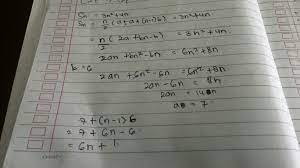 Sn = 3n² + 4n
Sn = n/2 (a + a + (n-1)b) = 3n² + 4n
= n/2 (2a + bn - b) = 3n² + 4n
2an + bn² - bn = 6n² + 8n
b = 6
2an + 6n² - 6n = 6n² + 8n
2an - 6n = 8n
2an = 14n
a = 7
7 + (n-1) 6
= 7 + 6n - 6
= 6n + 1